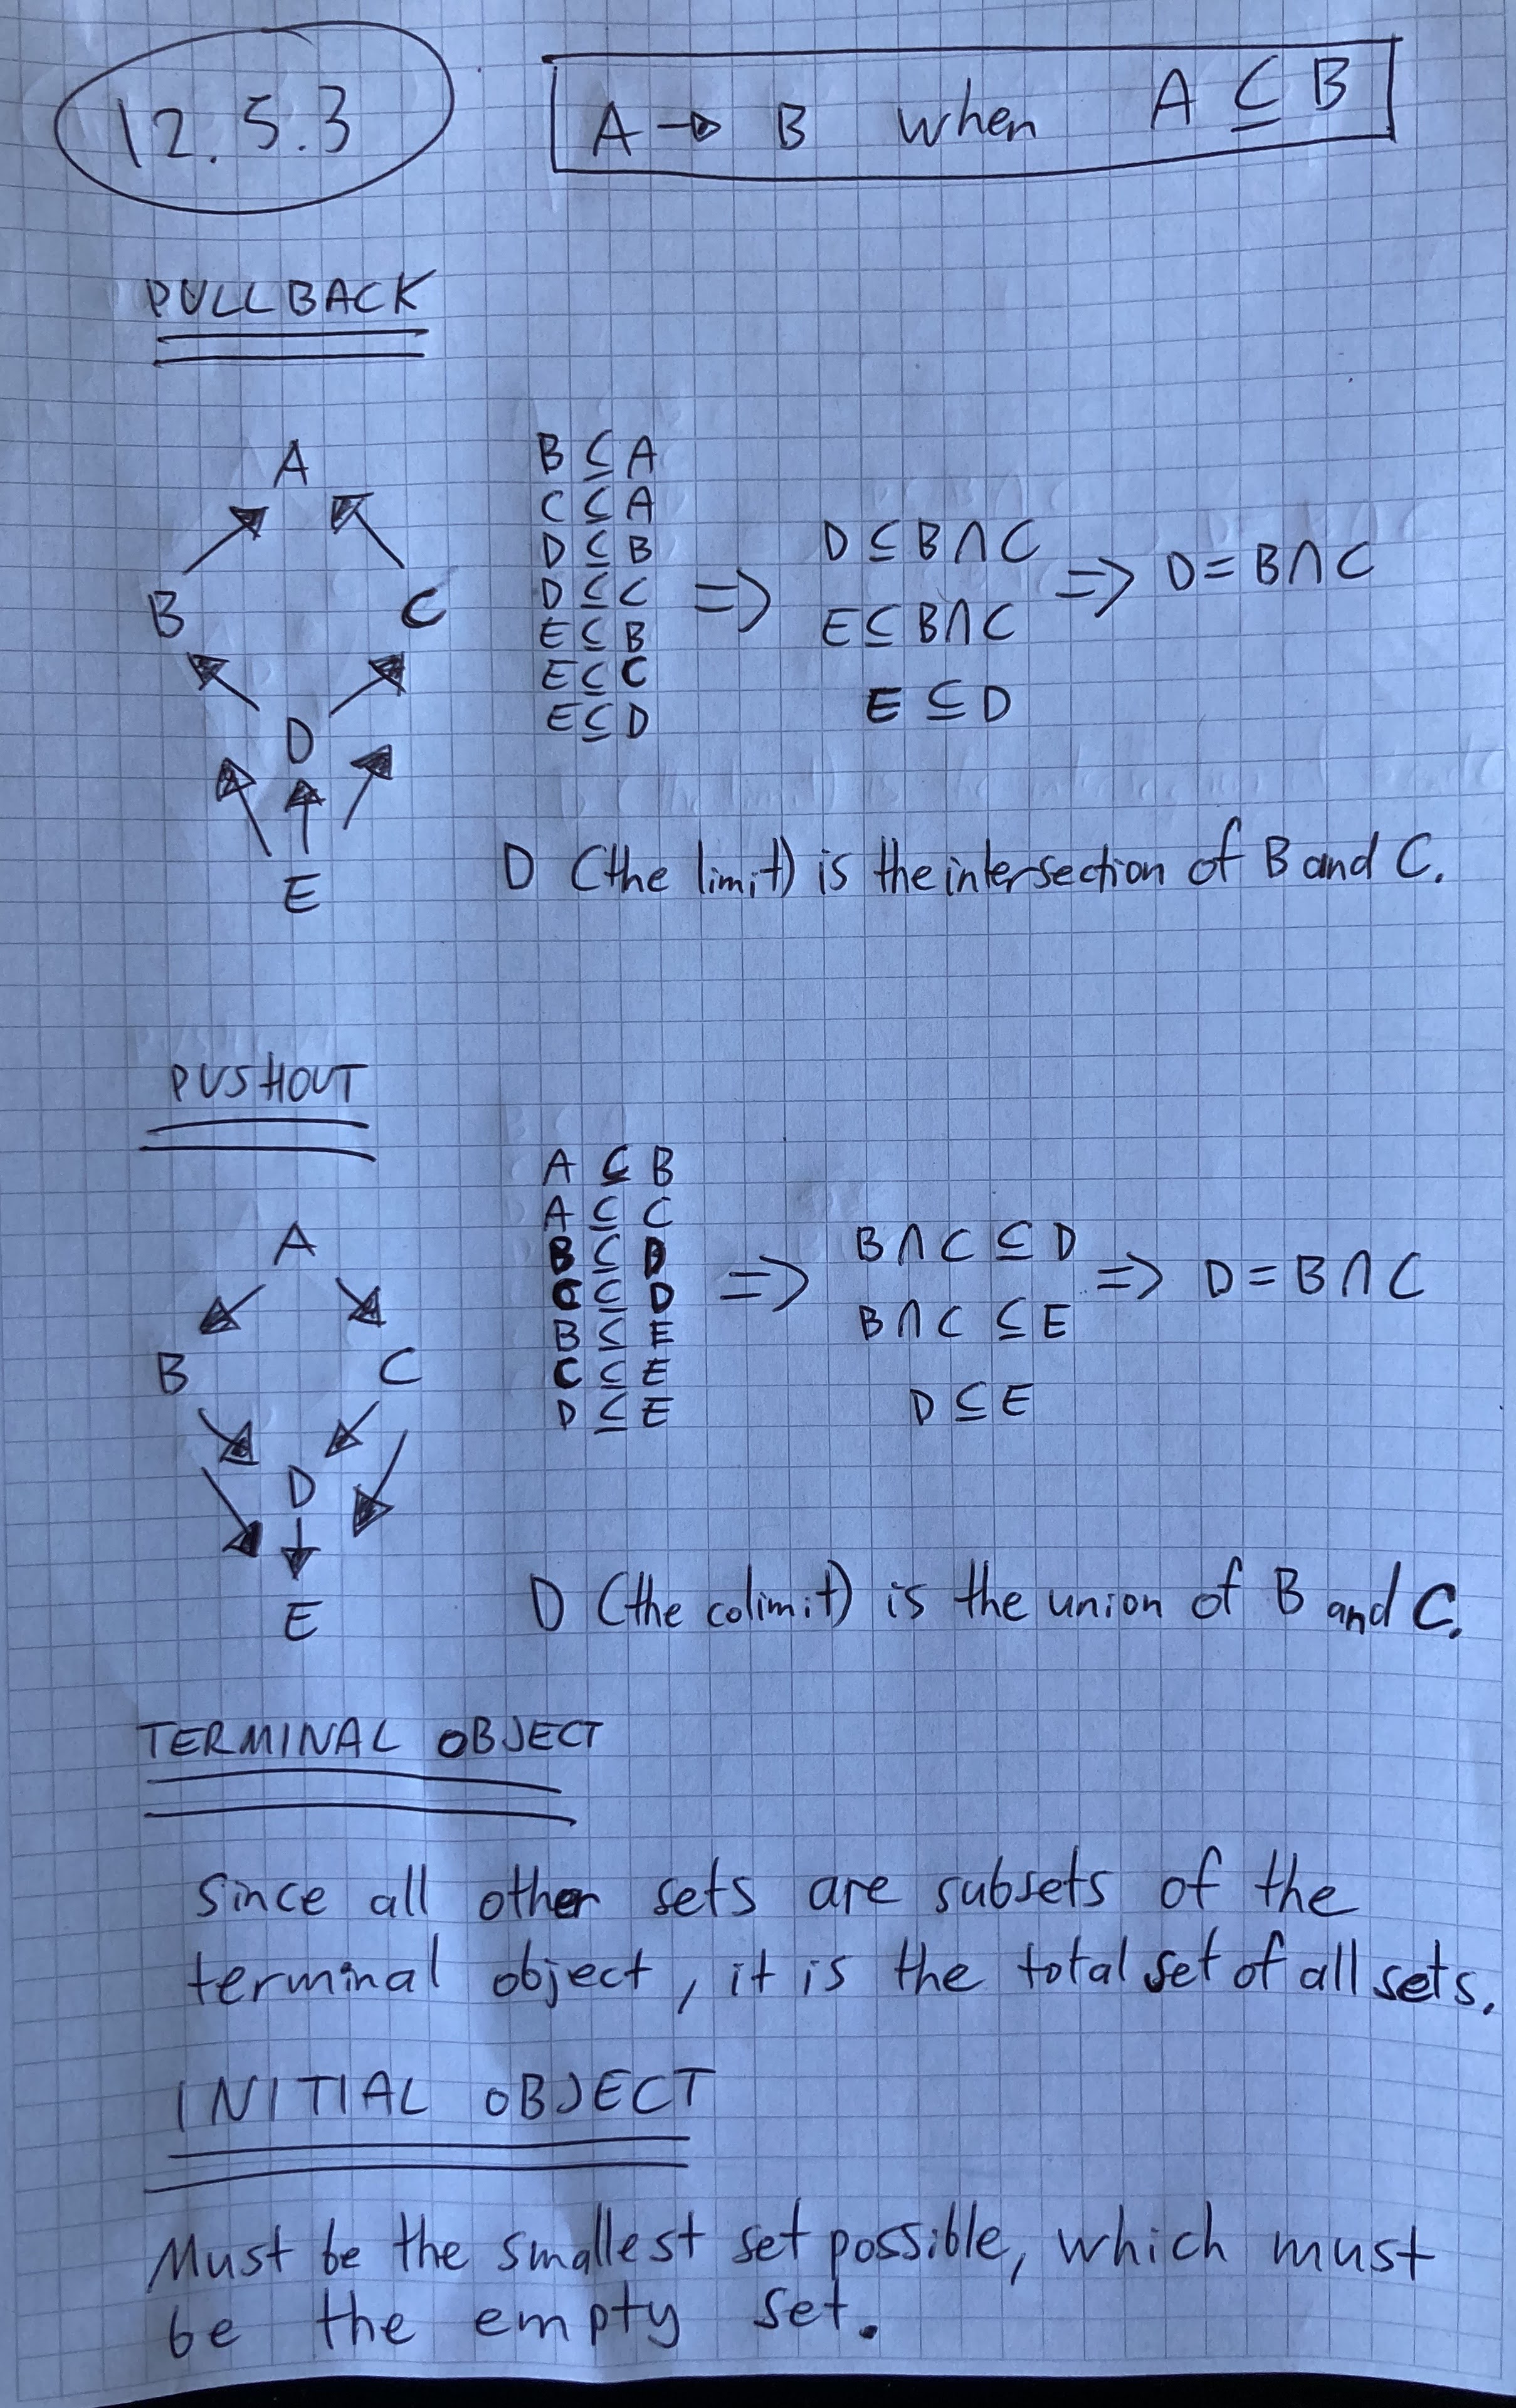 12.5.3
A → B when A ⊆ B
PULLBACK
A
B C
D
E
B ⊆ A
C ⊆ A
D ⊆ B
D ⊆ C
E ⊆ B
E ⊆ C
E ⊆ D
=>
D ⊆ B ∩ C
E ⊆ B ∩ C
E ⊆ D
=> D = B ∩ C
D (the limit) is the intersection of B and C.
PUSHOUT
A
B C
D
E
A ⊆ B
A ⊆ C
B ⊆ D
C ⊆ D
B ⊆ E
C ⊆ E
D ⊆ E
=>
B ∩ C ⊆ D
B ∩ C ⊆ E
D ⊆ E
=> D = B ∩ C
D (the colimit) is the union of B and C.
TERMINAL OBJECT
Since all other sets are subsets of the
terminal object, it is the total set of all sets.
INITIAL OBJECT
Must be the smallest set possible, which must
be the empty set.